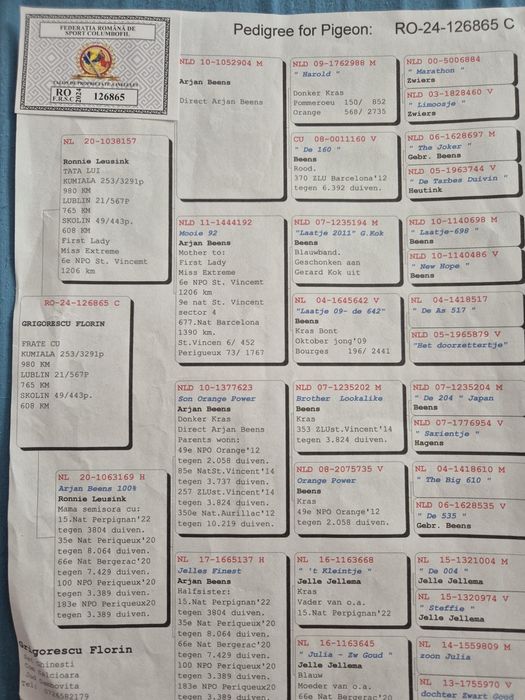 FEDERAȚIA ROMÂNĂ DE
SPORT COLUMBOFIL
RO
F.R.S.C
2024
126865
Pedigree for Pigeon: RO-24-126865 C
NL 20-1038157
Ronnie Leusink
TATA LUI
KUMIALA 253/3291p
980 KM
LUBLIN 21/567P
765 KM
SKOLIN 49/443p.
608 KM
First Lady
Miss Extreme
6e NPO St. Vincent
1206 km
RO-24-126865 C
GRIGORESCU FLORIN
FRATE CU
KUMIALA 253/3291p
980 KM
LUBLIN 21/567P
765 KM
SKOLIN 49/443p.
608 KM
NL 20-1063169 H
Arjan Beens 100%
Ronnie Leusink
Mama semisora cu:
15.Nat Perpignan'22
tegen 3804 duiven.
35e Nat Periqueux'20
tegen 8.064 duiven.
66e Nat Bergerac'20
tegen 7.429 duiven.
100 NPO Periqueux'20
tegen 3.389 duiven.
183e NPO Periqueux20
tegen 3.389 duiven.
Grigorescu Florin
NLD 10-1052904 M
Arjan Beens
Direct Arjan Beens
NLD 11-1444192
Mooie 92
Arjan Beens
Mother to:
First Lady
Miss Extreme
6e NPO St. Vincemt
1206 km
9e nat St. Vincent
sector 4
677.Nat Barcelona
1390 km.
St.Vincen 6/ 452
Perigueux 73/ 1767
NLD 10-1377623
Son Orange Power
Arjan Beens
Donker Kras
Direct Arjan Beens
Parents wonn:
49e NPO Orange'12
tegen 2.058 duiven.
85e NatSt.Vincent'14
tegen 3.737 duiven.
257 ZLUst.Vincent'14
tegen 3.824 duiven.
350e Nat.Aurillac'12
tegen 10.219 duiven.
NL 17-1665137 H
Jelles Finest
Arjan Beens
Halfsister:
15.Nat Perpignan'22
tegen 3804 duiven.
35e Nat Periqueux'20
tegen 8.064 duiven.
66e Nat Bergerac'20
tegen 7.429 duiven.
100 NPO Periqueux'20
tegen 3.389 duiven.
183e NPO Periqueux20
tegen 3.389 duiven.
NLD 09-1762988 M
" Harold "
Donker Kras
Pommeroeu 150/ 852
Orange 568/ 2735
CU 08-0011160 V
" De 160 "
Beens
Rood.
370 ZLU Barcelona'12
tegen 6.392 duiven.
NLD 07-1235194 M
"Laatje 2011" G.Kok
Beens
Blauwband.
Geschonken aan
Gerard Kok uit
NL 04-1645642 V
"Laatje 09- de 642"
Beens
Kras Bont
Oktober jong'09
Bourges 196/ 2441
NLD 07-1235202 M
Brother Lookalike
Beens
Kras
353 ZLUst.Vincent'14
tegen 3.824 duiven.
NLD 08-2075735 V
Orange Power
Beens
Kras
49e NPO Orange'12
tegen 2.058 duiven.
NL 16-1163668
" 't Kleintje "
Jelle Jellema
Kras
Vader van o.a.
15.Nat Perpignan'22
NL 16-1163645
" Julia - Zw Goud "
Jelle Jellema
Blauw
Moeder van o.a.
66e Nat Bergerac'20
tegen 7.429 duiven.
NLD 00-5006884
" Marathon "
Zwiers
NLD 03-1828460 V
" Limoosje "
Zwiers
NLD 06-1628697 M
" The Joker "
Gebr. Beens
NLD 05-1963744 V
" De Tarbes Duivin "
Heutink
NLD 10-1140698 M
" Laatje-698 "
Beens
NLD 10-1140486 V
" New Hope "
Beens
NL 04-1418517
" De As 517 "
NLD 05-1965879 V
"Het doorzettertje"
NLD 07-1235204 M
" De 204 " Japan
Beens
NLD 07-1776954 V
" Sarientje "
Hagens
NL 04-1418610 M
" The Big 610 "
NLD 06-1628535 V
" De 535 "
Gebr. Beens
NL 15-1321004 M
" De 004 "
Jelle Jellema
NL 15-1320974 V
" Steffie "
Jelle Jellema
NL 14-1559809 M
zoon Julia
NL 13-1755970 V
dochter Zwart Goud